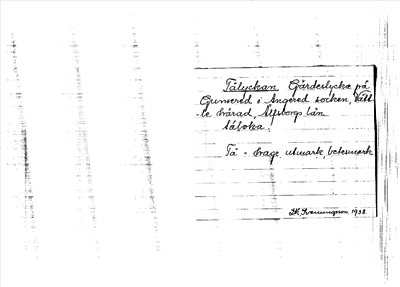 Tålyckan Gärdeslycka på
Gunnered i Angered socken, Vätt
le härad, Älfsborgs län
tåloka.
Tå = hage, utmark, betesmark
1938.